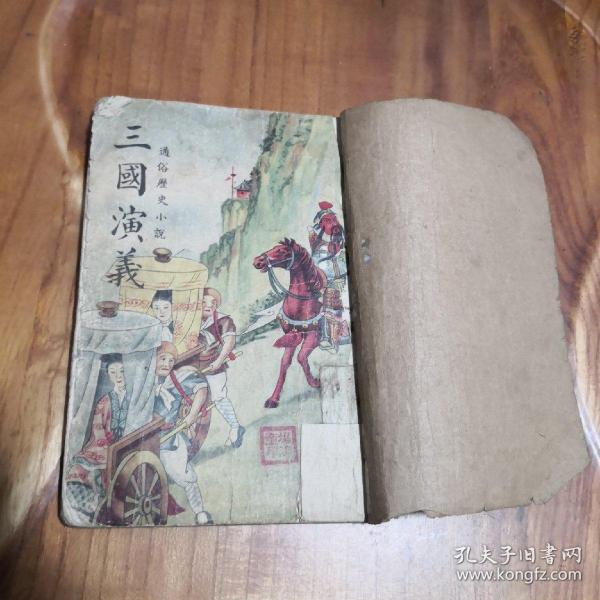 三國演義
通俗歷史小說
孔夫子旧书网
www.kongfz.com